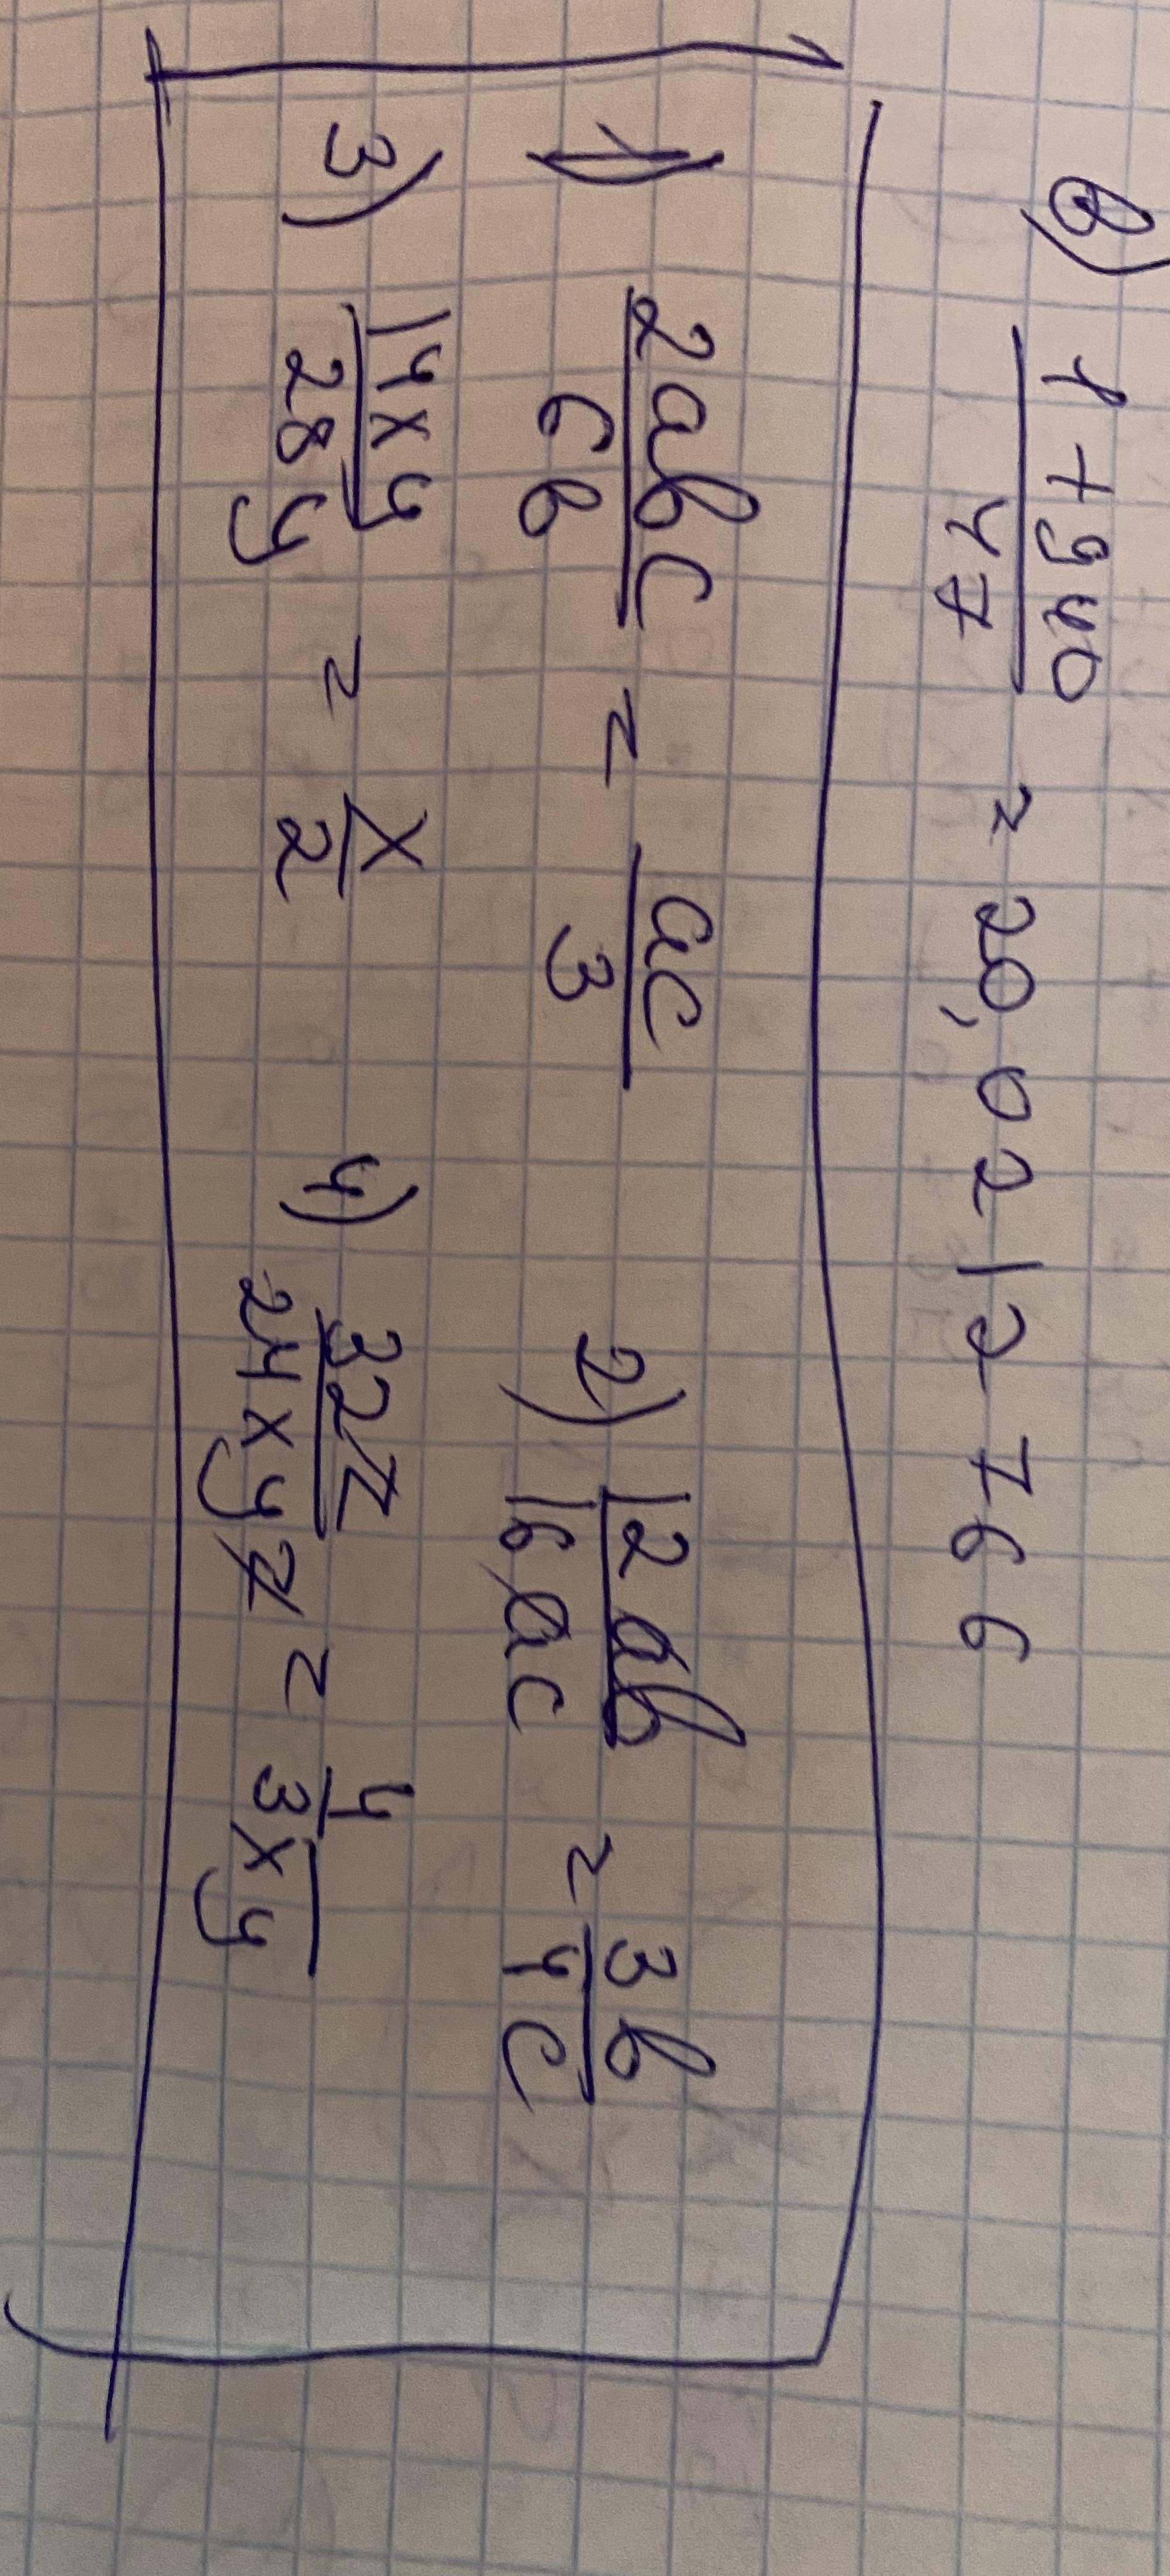 в) 1+940/47 = 20,0212766
1) 2abc/6b = ac/3
2) 12ab/16ac = 3b/4c
3) 14xy/28y = x/2
4) 32z/24xyz = 4/3xy